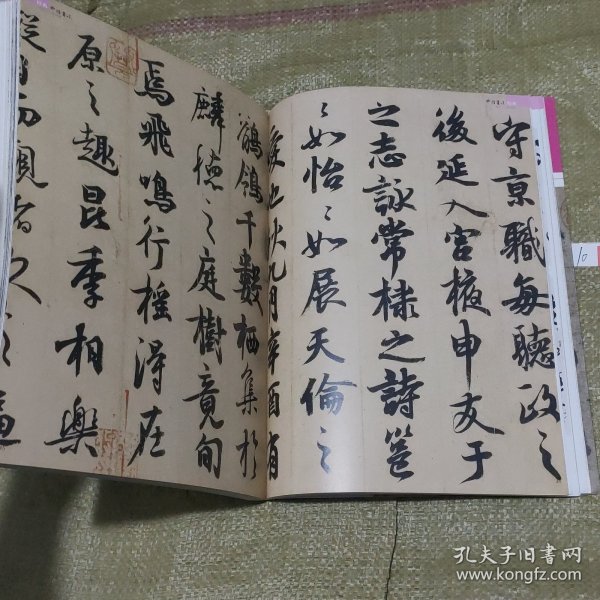 守京職每聽政之
後延入宮掖申友于
之志詠常棣之詩邕
〻如怡〻如展天倫之
愛也秋九月辛酉有
鶺鴒千數栖集於
麟德之庭樹竟旬
焉飛鳴行搖得在
原之趣昆季相樂
從目而觀者久之逼
10
孔夫子旧书网
www.kongfz.com